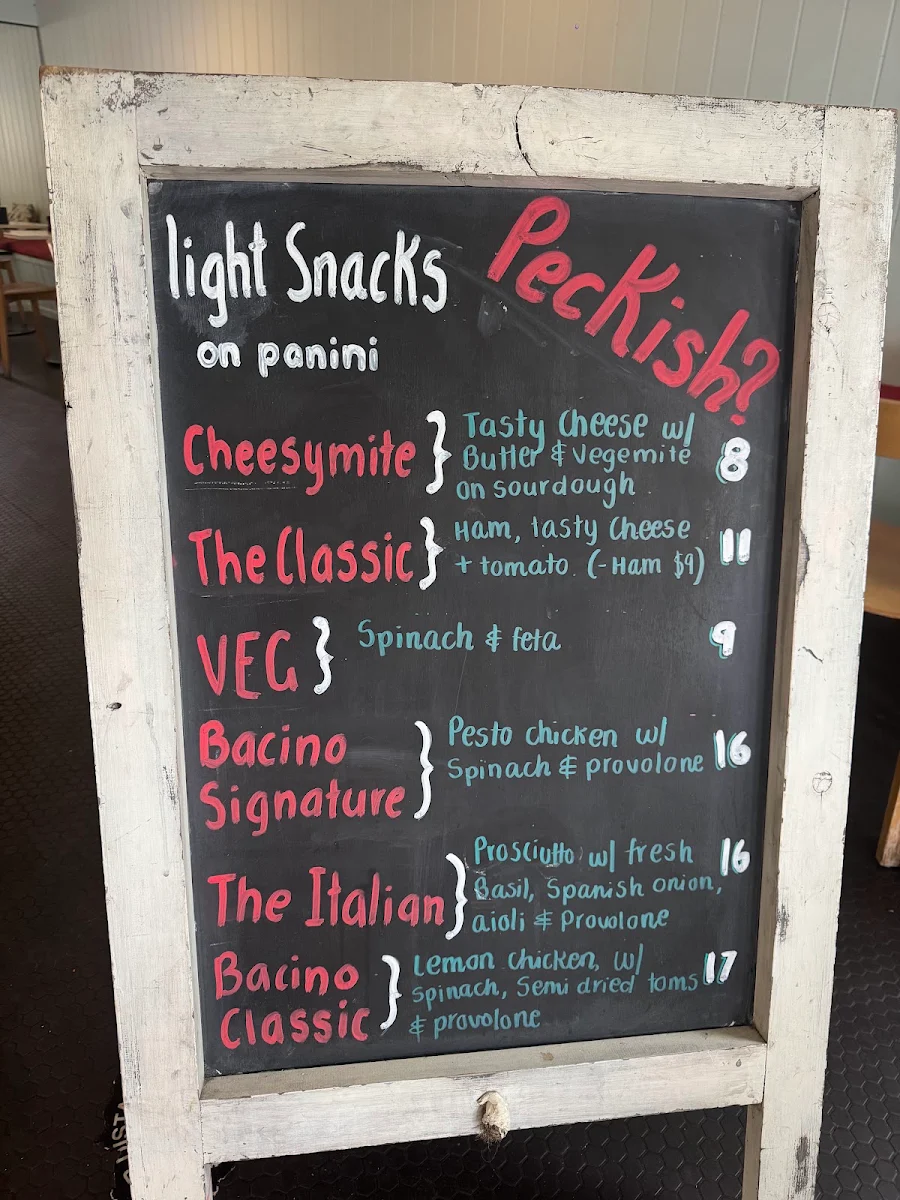 light Snacks
Peckish?
on panini
Cheesymite } Tasty Cheese w/ 8
Butter & Vegemite
on sourdough
The Classic } Ham, tasty Cheese 11
+ tomato (-Ham $9)
VEG } Spinach & feta 9
Bacino Pesto chicken w/ 16
Signature } Spinach & provolone
The Italian } Prosciutto w/ fresh 16
Basil, Spanish onion,
aioli & Provolone
Bacino Lemon chicken, w/ 17
Classic } Spinach, Semi dried toms
& provolone